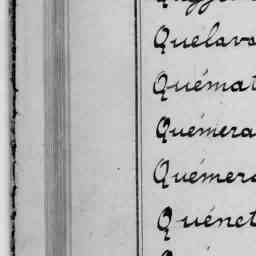 Quelava
Quémat
Quémera
Quémera
Quénet